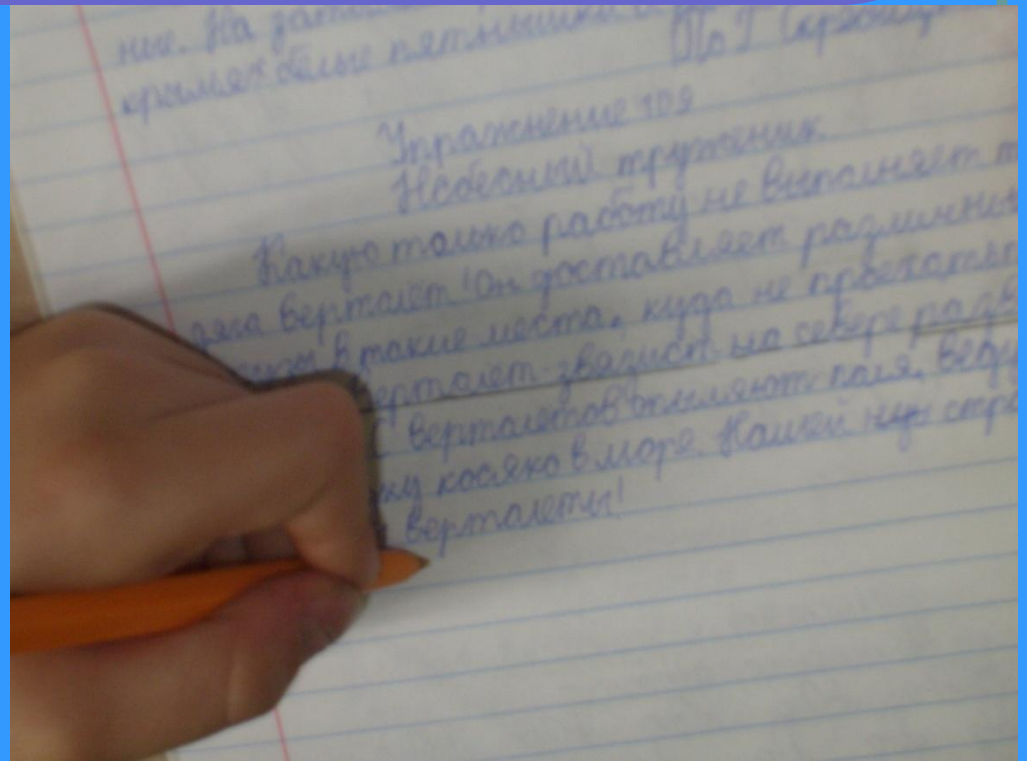 ные. На
крыльях белые пятнышки
По Г
Упражнение 109
Небесный труженик
Какую только работу не выполняет т
дяга верталёт! Он доставляет различны
в такие места, куда не проехать
ерталёт-звязист на севере разв
верталетов опыляют поля, веду
ку косяко в море. Нашей стра
верталеты!